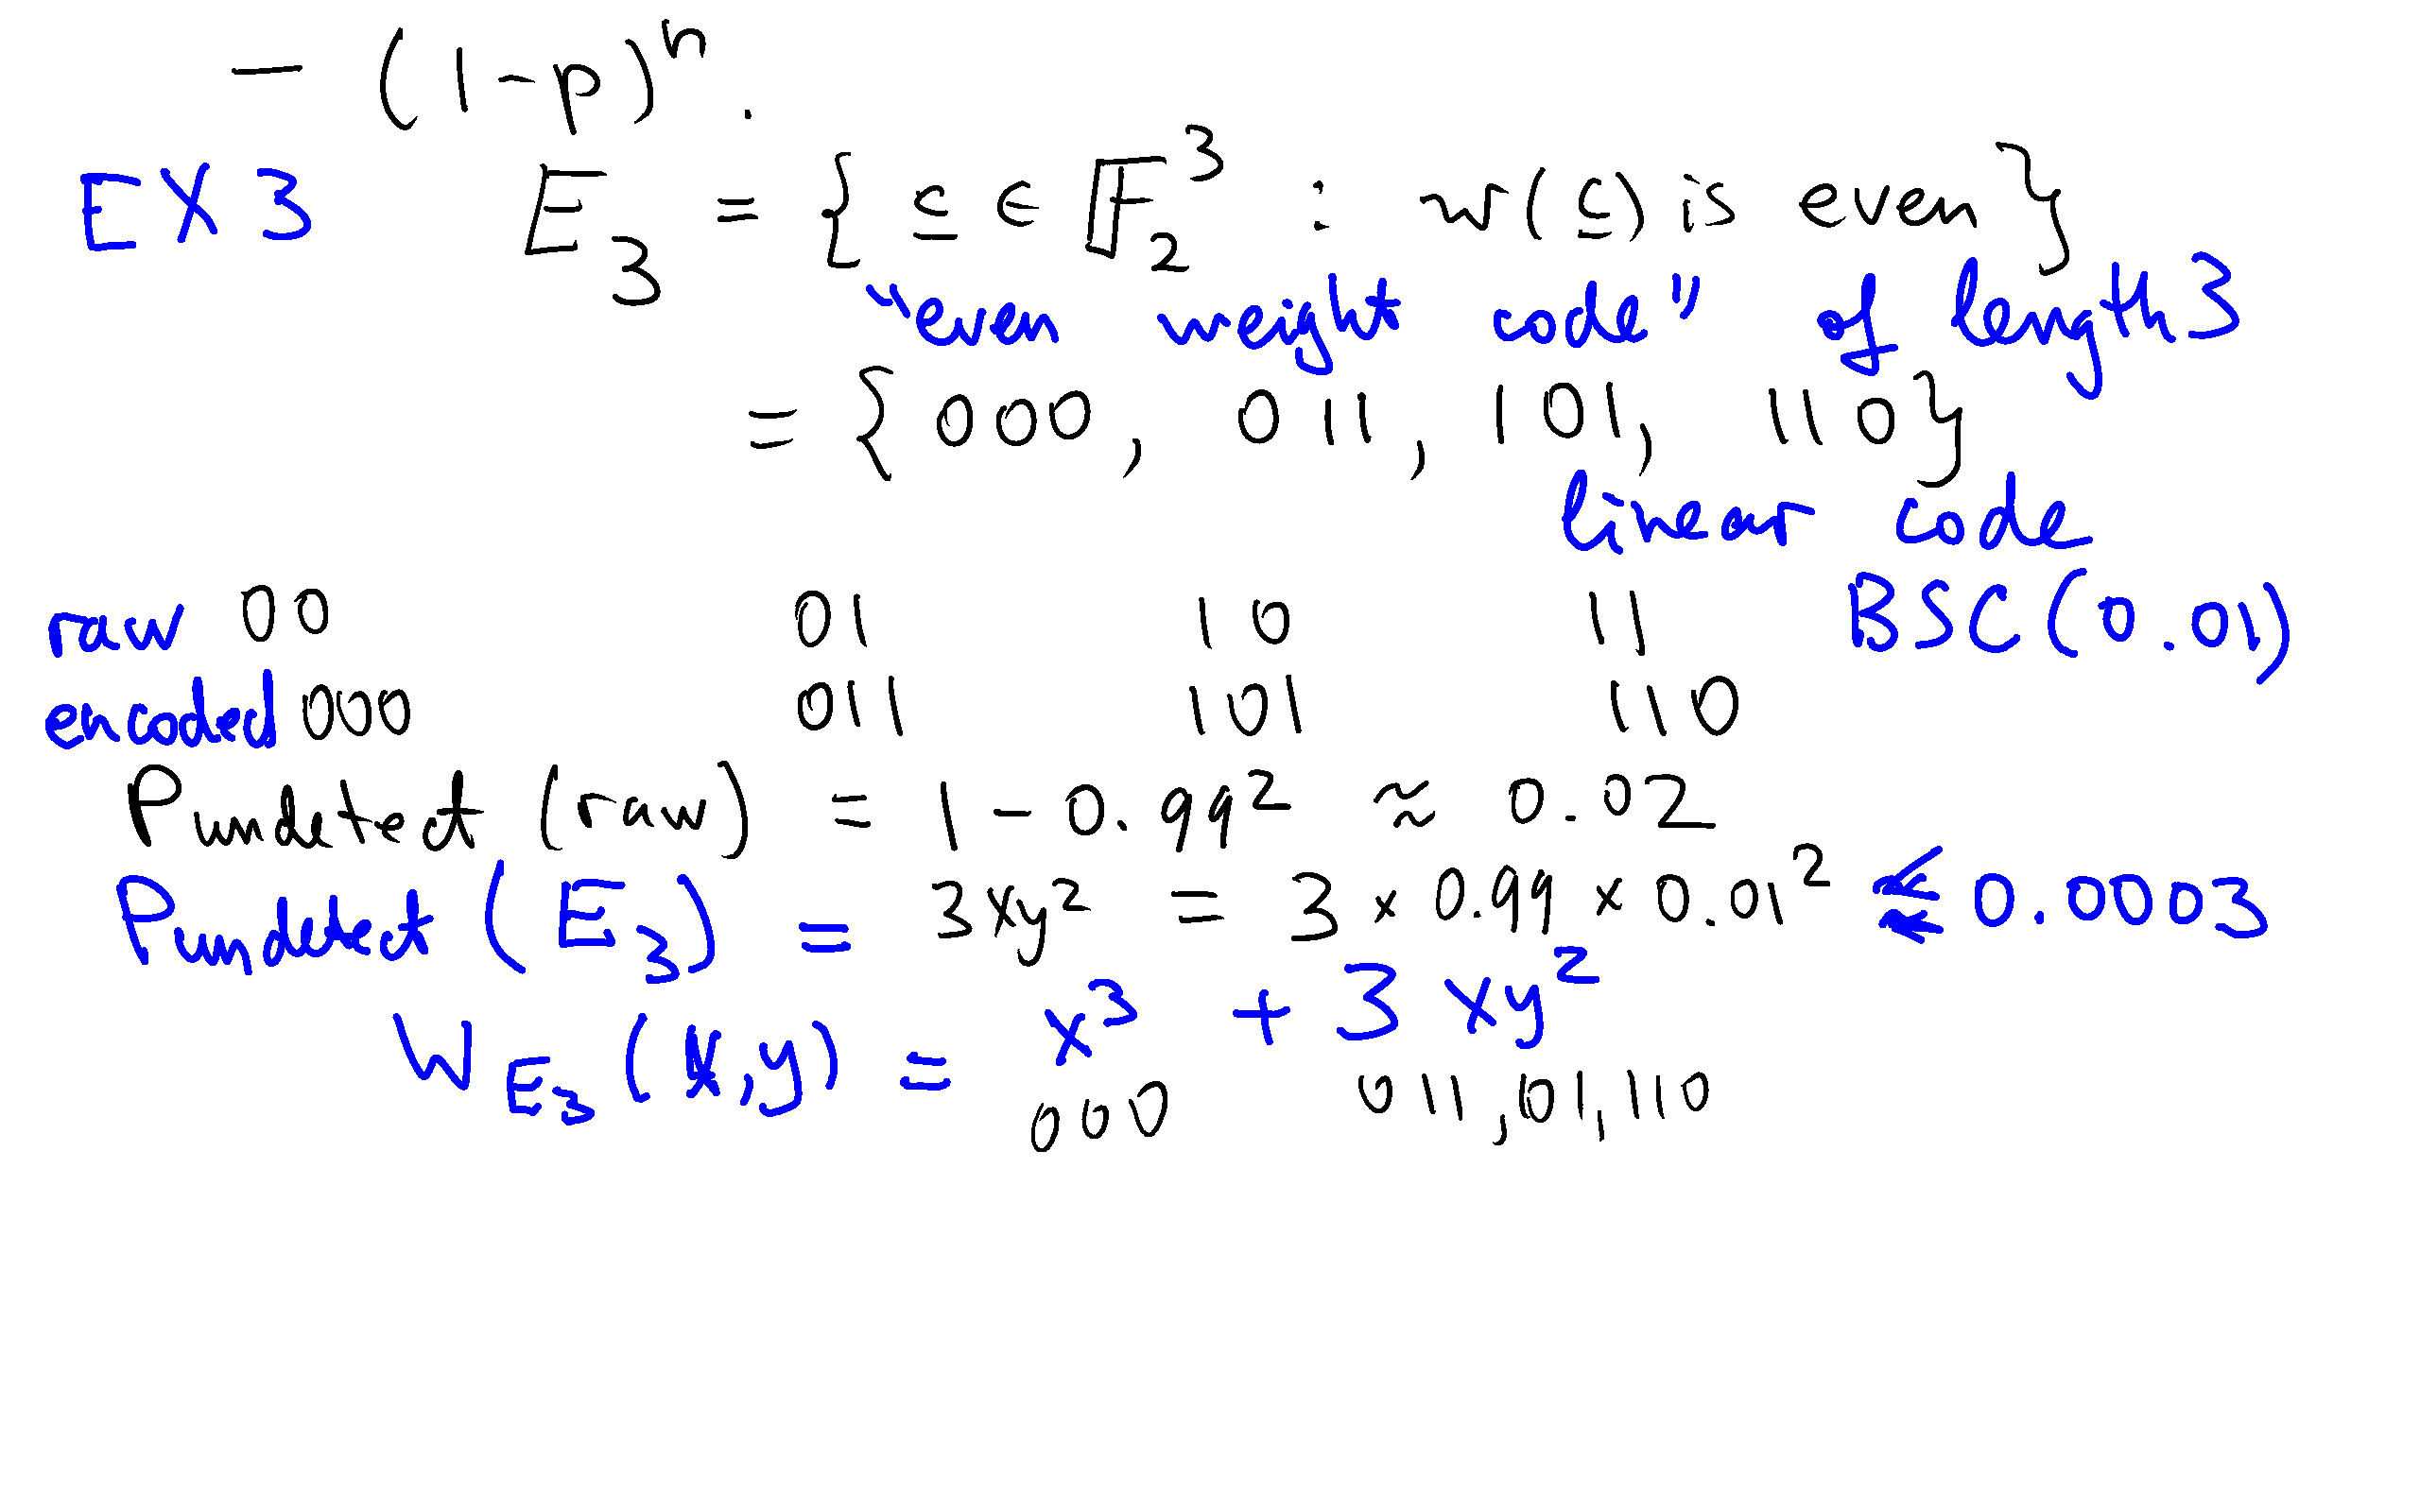 — (1-p)ⁿ.
EX 3 E₃ = { c̲ ∈ 𝔽₂³ : w(c̲) is even}
"even weight code" of length 3
= {000, 011, 101, 110}
linear code
raw 00 01 10 11 BSC(0.01)
encoded 000 011 101 110
Pundetect (raw) = 1 - 0.99² ≈ 0.02
Pundetect (E₃) = 3xy² = 3 × 0.99 × 0.01² ≤ 0.0003
W_E₃ (x,y) = x³ + 3xy²
000 011, 101, 110